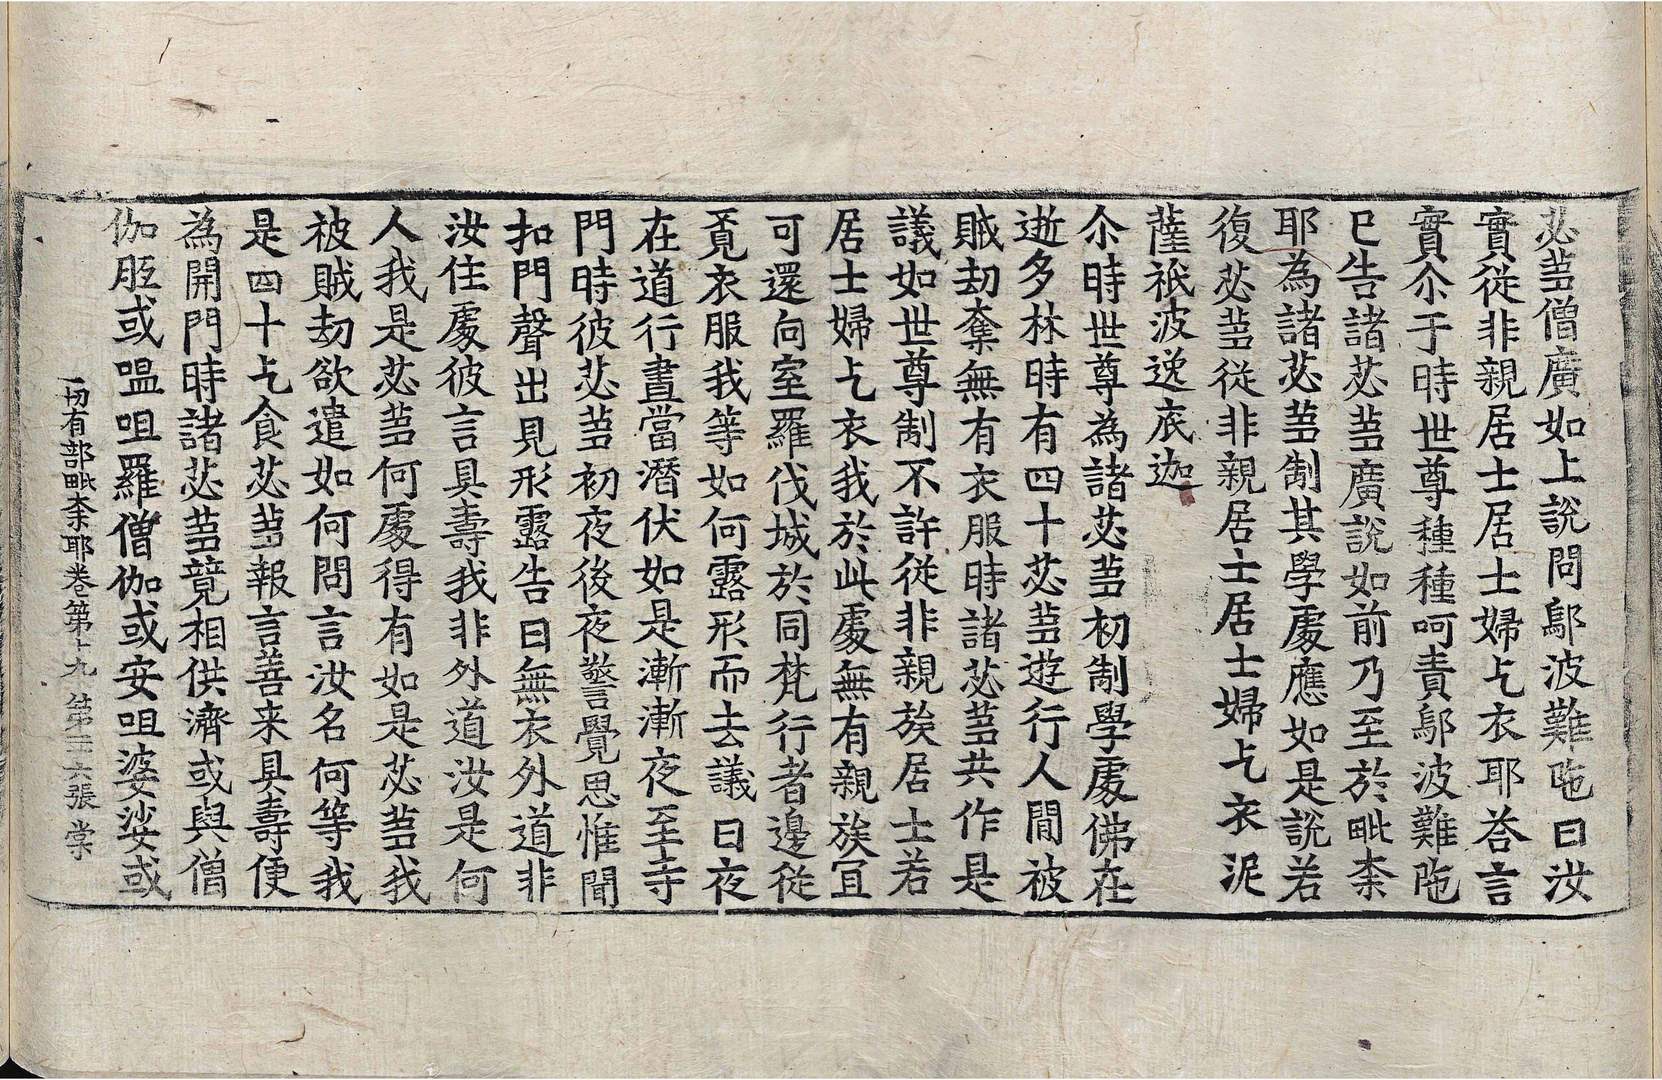 苾蒭僧廣如上說問鄔波難陁曰汝
實從非親居士居士婦乞衣耶荅言
實尒于時世尊種種呵責鄔波難陁
已告諸苾蒭廣說如前乃至於毗柰
耶為諸苾蒭制其學處應如是說若
復苾蒭從非親居士居士婦乞衣泥
薩祇波逸底迦
尒時世尊為諸苾蒭初制學處佛在
逝多林時有四十苾蒭遊行人閒被
賊劫奪無有衣服時諸苾蒭共作是
議如世尊制不許從非親族居士若
居士婦乞衣我於此處無有親族宜
可還向室羅伐城於同梵行者邊從
覓衣服我等如何露形而去議曰夜
在道行晝當潛伏如是漸漸夜至寺
門時彼苾蒭初夜後夜警覺思惟聞
扣門聲出見形露告曰無衣外道非
汝住處彼言具壽我非外道汝是何
人我是苾蒭何處得有如是苾蒭我
被賊劫欲遣如何問言汝名何等我
是四十乞食苾蒭報言善来具壽便
為開門時諸苾蒭竟相供濟或與僧
伽胝或嗢呾羅僧伽或安呾婆娑或
一切有部毗柰耶卷第十九 第二六張 棠